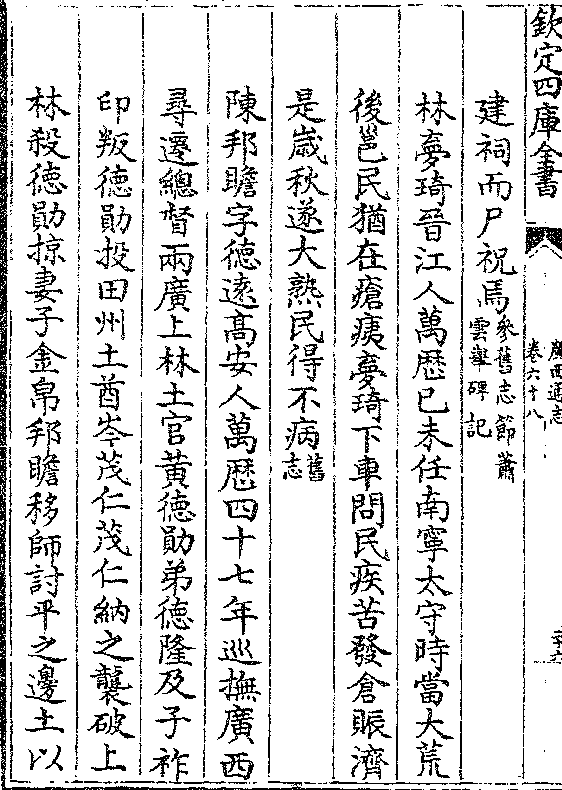 欽定四庫全書
廣西通志
卷六十八
建祠而尸祝焉參舊志節蕭雲舉碑記
林夢琦晉江人萬歴己未任南寧太守時當大荒
後邕民猶在瘡痍夢琦下車問民疾苦發倉賑濟
是歲秋遂大熟民得不病舊志
陳邦瞻字徳逺髙安人萬歴四十七年巡撫廣西
尋遷總督兩廣上林土官黃徳勛弟徳隆及子祚
印叛徳勛投田州土酋岑茂仁茂仁納之襲破上
林殺徳勛掠妻子金帛邦瞻移師討平之邊土以